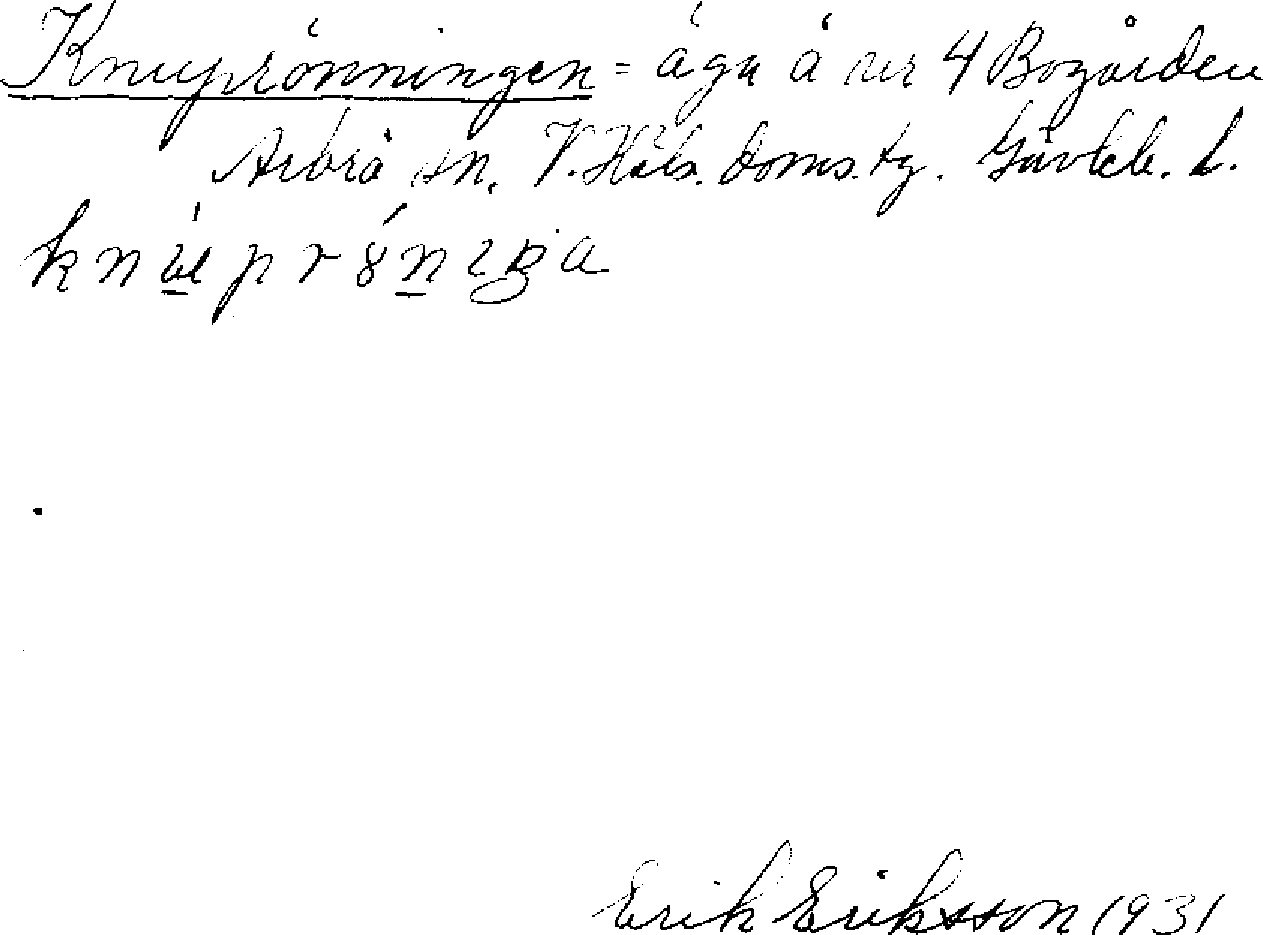 Knuprönningen = ägu å nr 4 Bogården
Arbrå sn. V. Häls. doms. tg. Gävleb. l.
Erik Eriksson 1931